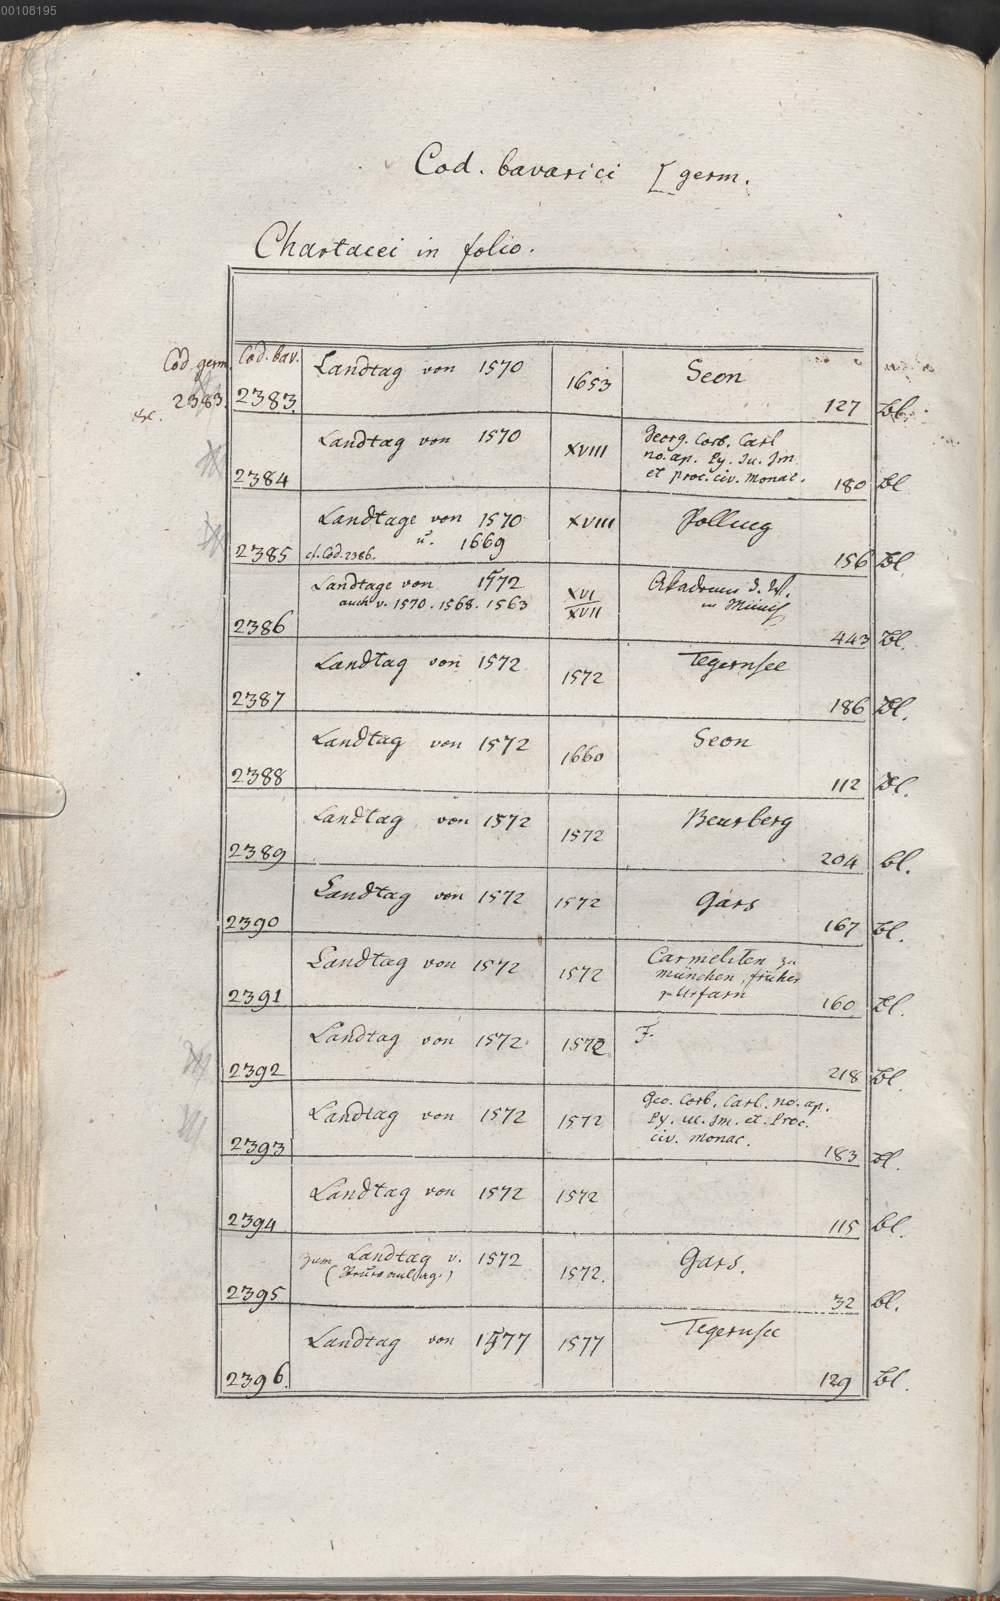 00108195
Cod. bavarici [germ.
Chartacei in folio.
Cod. germ. Cod. bav.
2383. 2383. Landtag von 1570 1653 Seon 127 Bl.
&c.
2384 Landtag von 1570 XVIII Georg. Corb. Carl
no. ap. Py. Ju. Im.
et proc. civ. Monac. 180 Bl
2385 Landtage von 1570 XVIII Polling 156 Bl.
u. 1669
cf. Cod. 2386.
2386 Landtage von 1572 XVI Akademie d. W.
auch v. 1570. 1568. 1563 XVII in Münch 443 Bl.
2387 Landtag von 1572 1572 Tegernsee 186 Bl.
2388 Landtag von 1572 1660 Seon 112 Bl.
2389 Landtag von 1572 1572 Beurberg 204 bl.
2390 Landtag von 1572 1572 Gars 167 bl.
2391 Landtag von 1572 1572 Carmeliten zu
münchen, früher
160 Bl.
2392 Landtag von 1572 1572 F. 218 Bl.
2393 Landtag von 1572 1572 Geo. Corb. Carl. no. ap.
Py. uc. Im. et. Proc.
civ. monac. 183 Bl.
2394 Landtag von 1572 1572 115 bl.
2395 zum Landtag v. 1572 1572. Gars. 32 bl.
2396. Landtag von 1577 1577 Tegernsee 129 Bl.